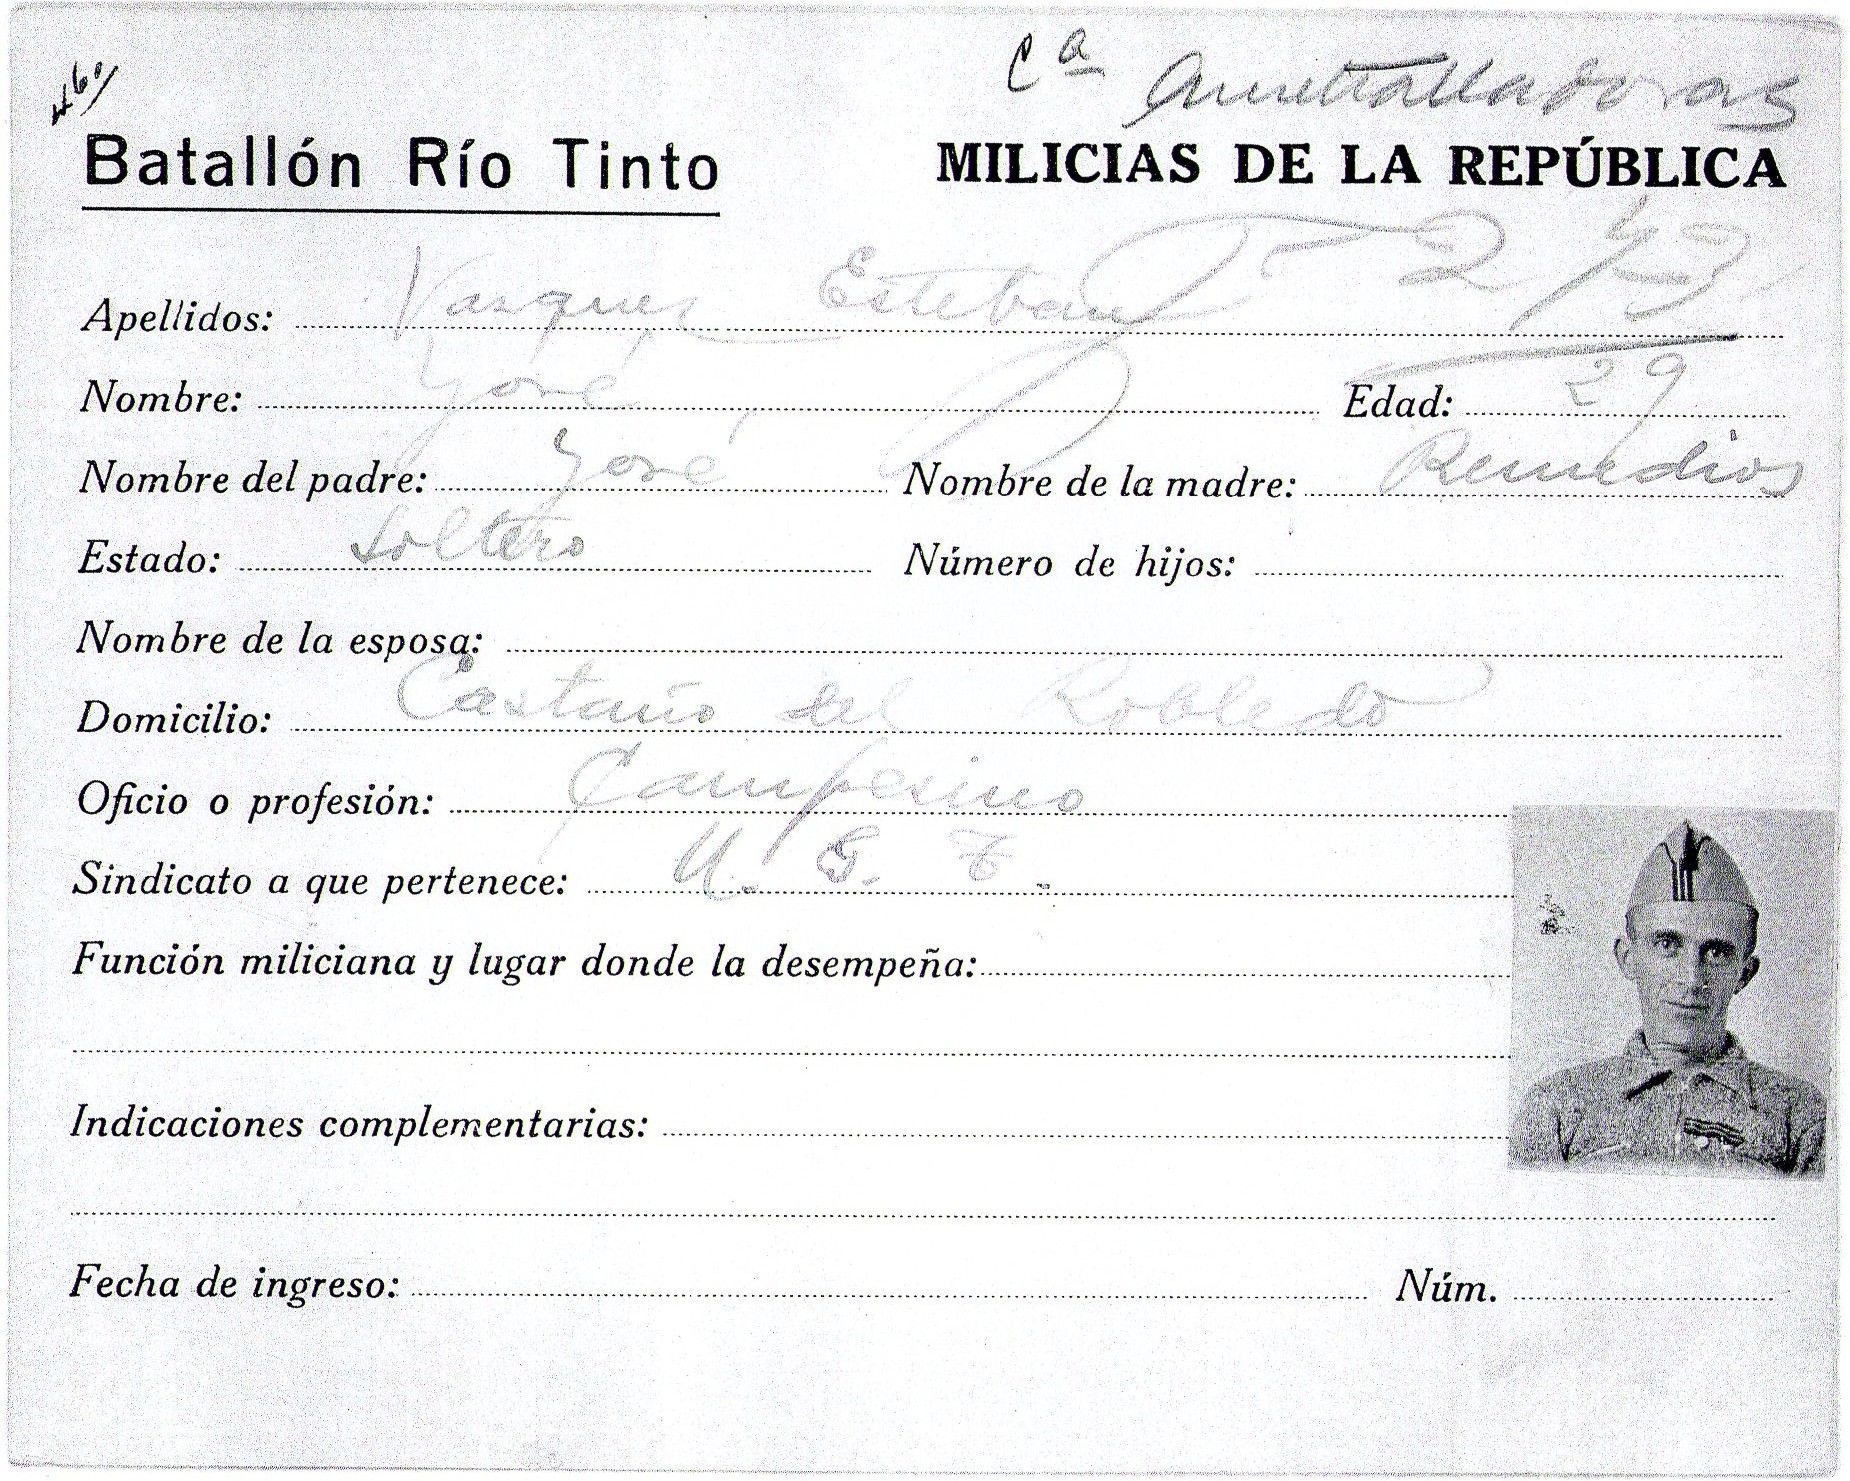 Cª Ametralladoras
Batallón Río Tinto MILICIAS DE LA REPÚBLICA
Apellidos: Vazquez Esteban
Nombre: José Edad: 29
Nombre del padre: José Nombre de la madre: Remedios
Estado: Soltero Número de hijos:
Nombre de la esposa:
Domicilio: Castaño del Robledo
Oficio o profesión: Campesino
Sindicato a que pertenece: U. G. T.
Función miliciana y lugar donde la desempeña:
Indicaciones complementarias:
Fecha de ingreso: Núm.